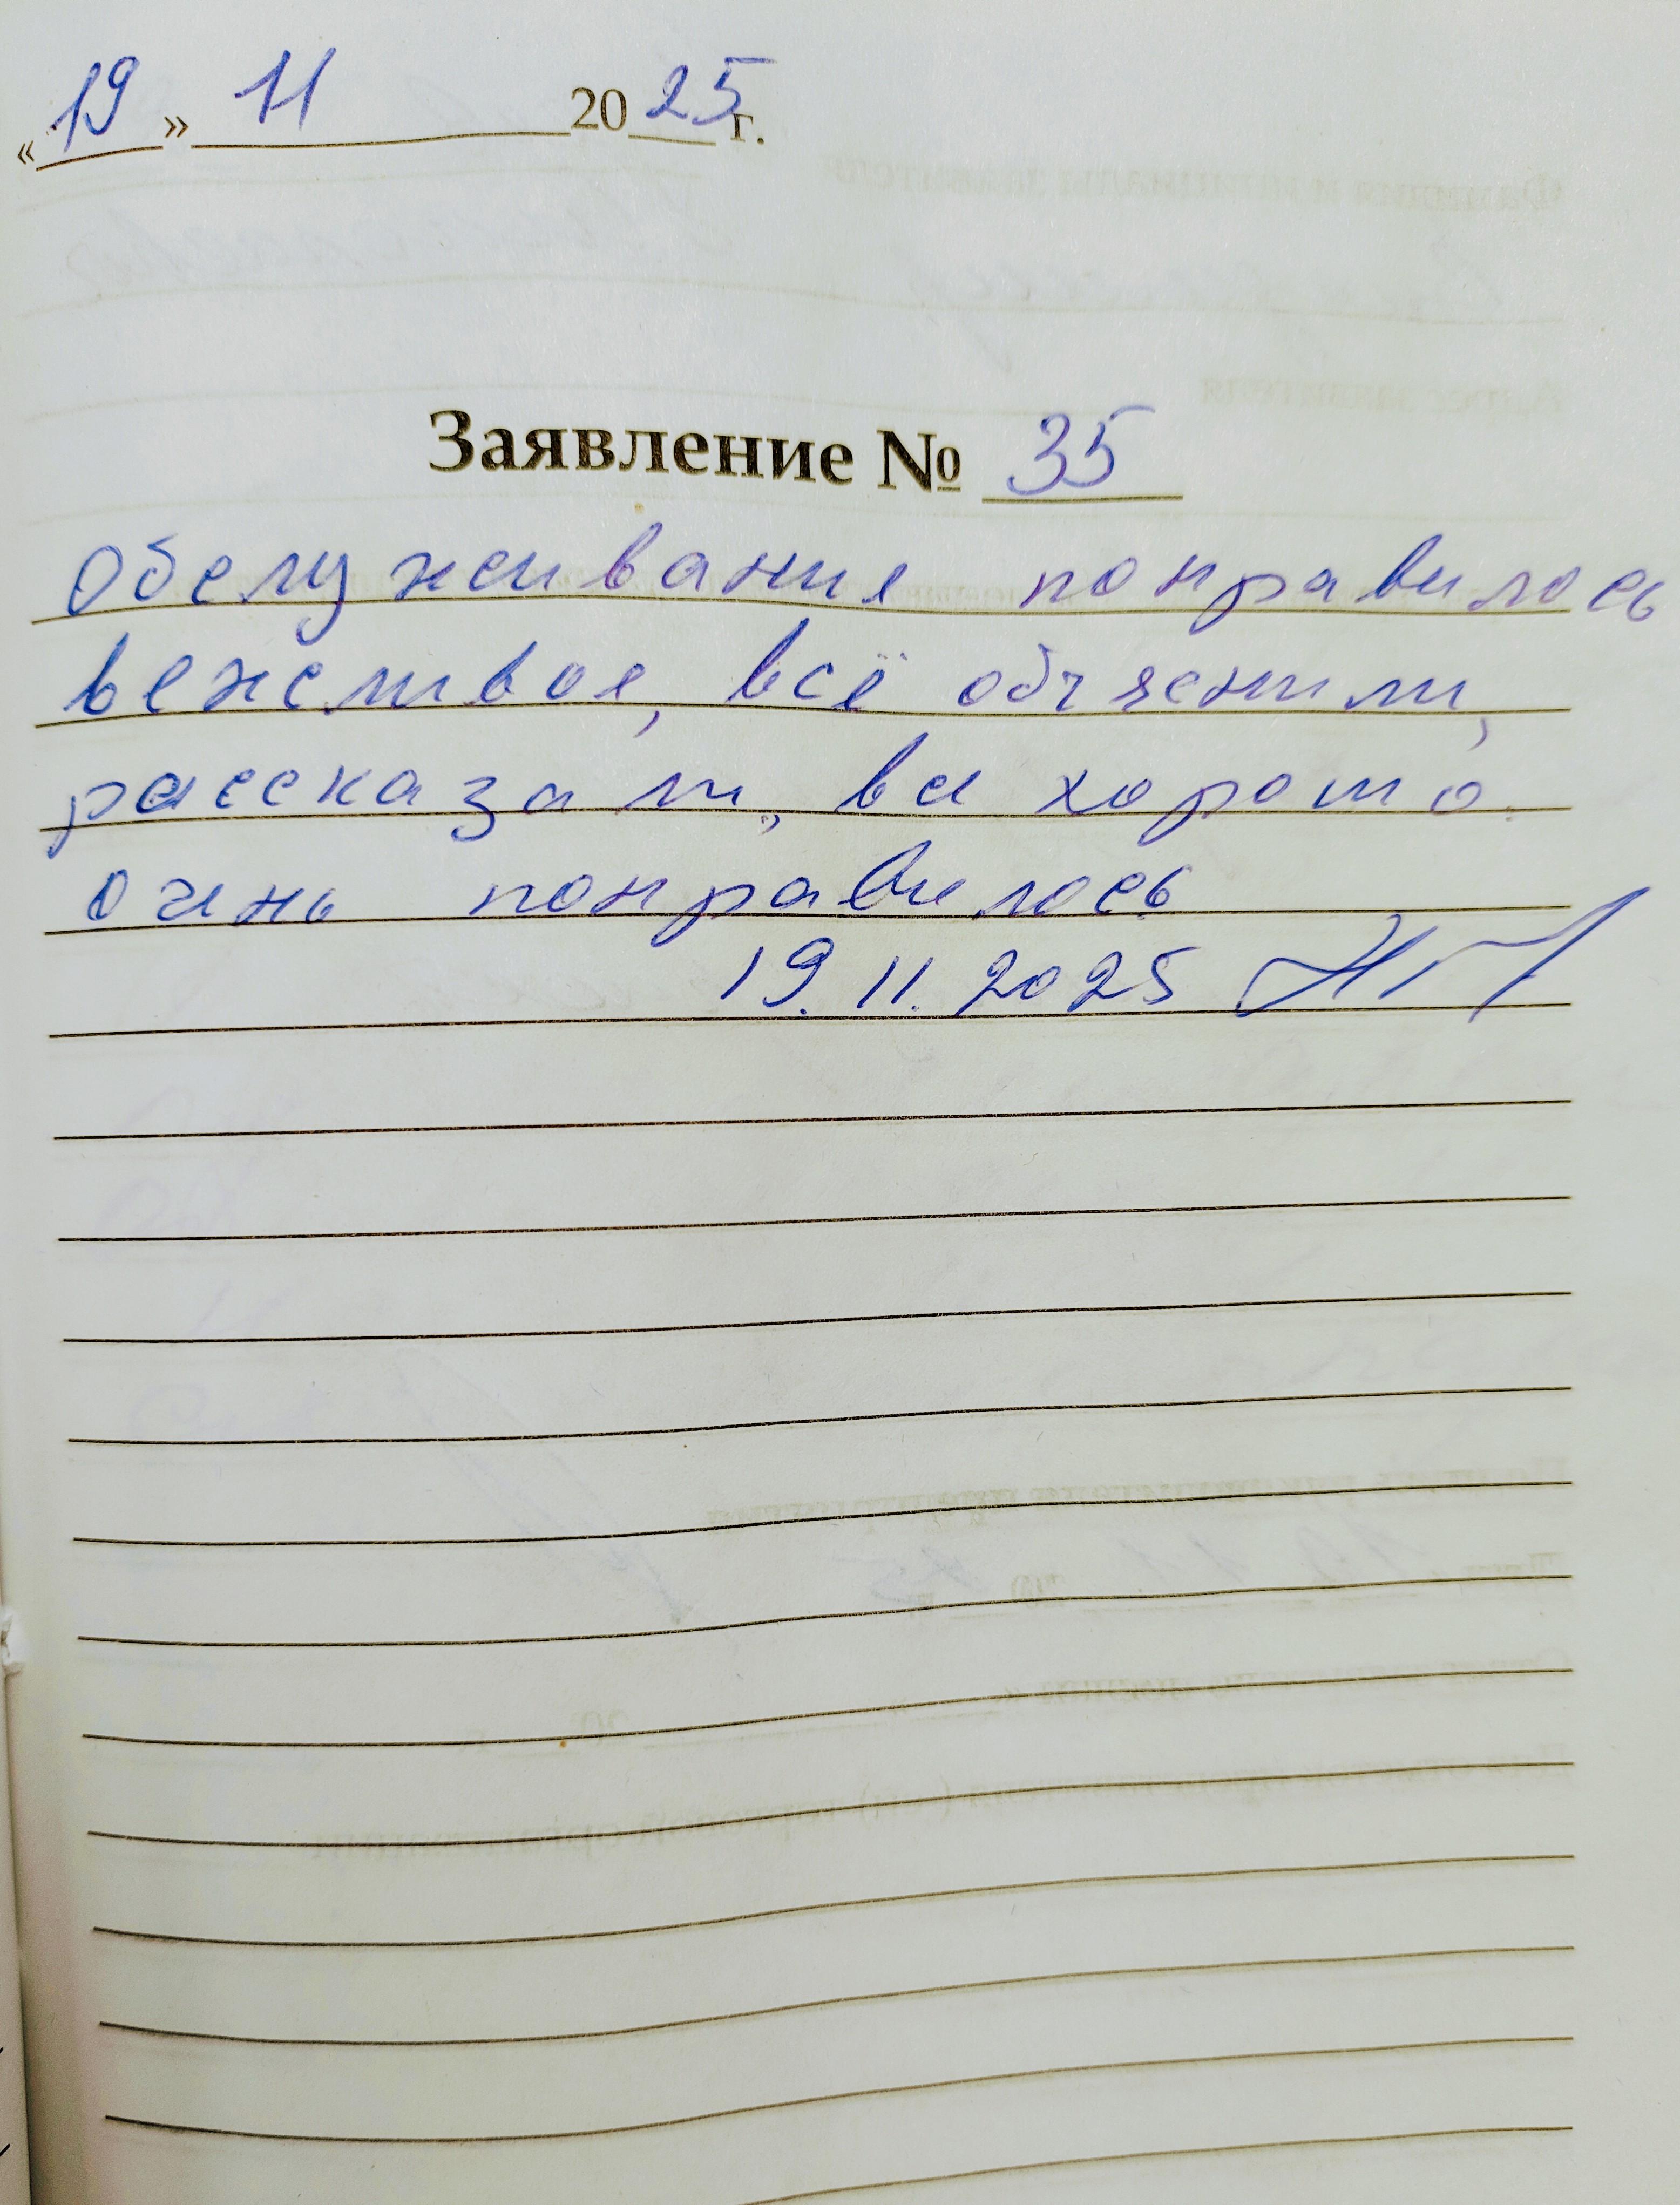 «19» 11 2025 г.
Заявление № 35
Обслуживание понравилось
вежливое, всё объяснили,
рассказали, все хорошо.
очень понравилось
19.11.2025